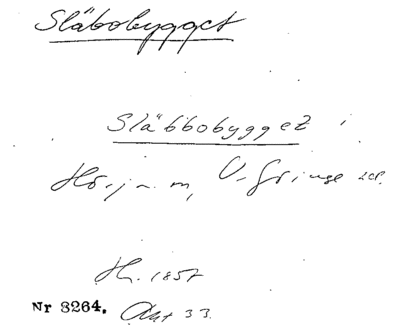 Släbobygget
Släbbobygget i
V. Gringe
1857
Nr 3264. Akt 33.